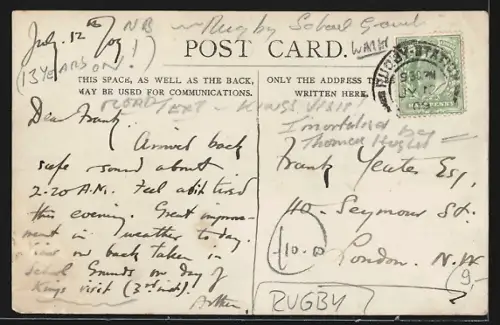 July. 12th /09 NB Rugby School Grounds
(13 YEARS ON!)
POST CARD.
WARW
RUGBY STATION
9 30 PM
HALFPENNY
THIS SPACE, AS WELL AS THE BACK,
MAY BE USED FOR COMMUNICATIONS.
ONLY THE ADDRESS TO
WRITTEN HERE.
TEXT - KINGS VISIT!
Imortalised by
Thomas Hughes
Dear Frank,
Arrived back
safe & sound about
2-20 A.M. Feel a bit tired
this evening. Great improve-
ment in weather to day.
on back taken in
School Grounds on day of
Kings visit (3rd inst).
Arthur.
Frank Yeates Esq,
40. Seymour St.
London. N.W.
10.00
9-
RUGBY